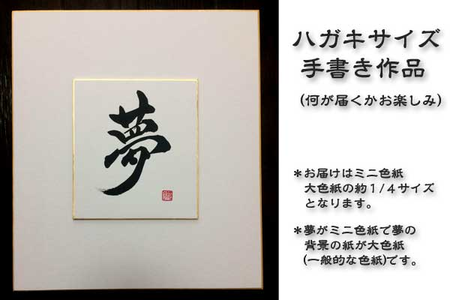 夢
ハガキサイズ
手書き作品
(何が届くかお楽しみ)
*お届けはミニ色紙
大色紙の約1/4サイズ
となります。
*夢がミニ色紙で夢の
背景の紙が大色紙
(一般的な色紙)です。